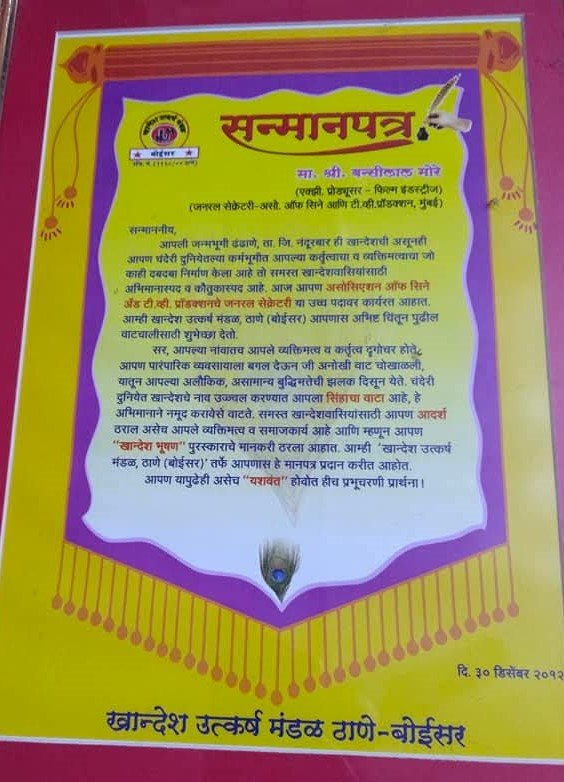 खान्देश उत्कर्ष मंडळ
बोईसर
सन्मानपत्र
मा. श्री. बन्सीलाल मोरे
(एक्झी. प्रोड्यूसर - फिल्म इंडस्ट्रीज)
(जनरल सेक्रेटरी-असो. ऑफ सिने आणि टी.व्ही.प्रॉडक्शन, मुंबई)
सन्माननीय,
आपली जन्मभूमी ढंढाणे, ता. जि. नंदूरबार ही खान्देशची असूनही
आपण चंदेरी दुनियेतल्या कर्मभूमीत आपल्या कर्तृत्वाचा व व्यक्तिमत्वाचा जो
काही दबदबा निर्माण केला आहे तो समस्त खान्देशवासियांसाठी
अभिमानास्पद व कौतुकास्पद आहे. आज आपण असोसिएशन ऑफ सिने
अँड टी.व्ही. प्रॉडक्शनचे जनरल सेक्रेटरी या उच्च पदावर कार्यरत आहात.
आम्ही खान्देश उत्कर्ष मंडळ, ठाणे (बोईसर) आपणास अभिष्ट चिंतून पुढील
वाटचालीसाठी शुभेच्छा देतो.
सर, आपल्या नांवातच आपले व्यक्तिमत्व व कर्तृत्व दृगोचर होते.
आपण पारंपारिक व्यवसायाला बगल देऊन जी अनोखी वाट चोखाळली,
यातून आपल्या अलौकिक, असामान्य बुद्धिमतेची झलक दिसून येते. चंदेरी
दुनियेत खान्देशचे नाव उज्ज्वल करण्यात आपला सिंहाचा वाटा आहे, हे
अभिमानाने नमूद करावेसे वाटते. समस्त खान्देशवासियांसाठी आपण आदर्श
ठराल असेच आपले व्यक्तिमत्व व समाजकार्य आहे आणि म्हणून आपण
"खान्देश भूषण" पुरस्काराचे मानकरी ठरला आहात. आम्ही 'खान्देश उत्कर्ष
मंडळ, ठाणे (बोईसर)' तर्फे आपणास हे मानपत्र प्रदान करीत आहोत.
आपण यापुढेही असेच "यशवंत" होवोत हीच प्रभूचरणी प्रार्थना!
दि. ३० डिसेंबर २०१२
खान्देश उत्कर्ष मंडळ ठाणे-बोईसर